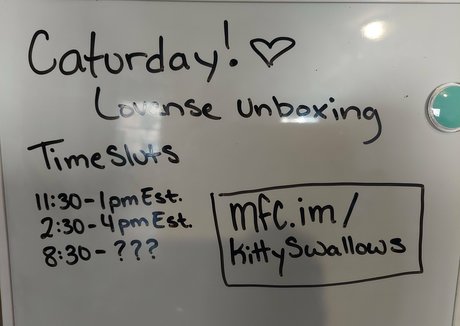 Caturday! ♡
Lovense Unboxing
Timesluts
11:30-1pm Est.
2:30-4pm Est.
8:30-???
mfc.im/
KittySwallows